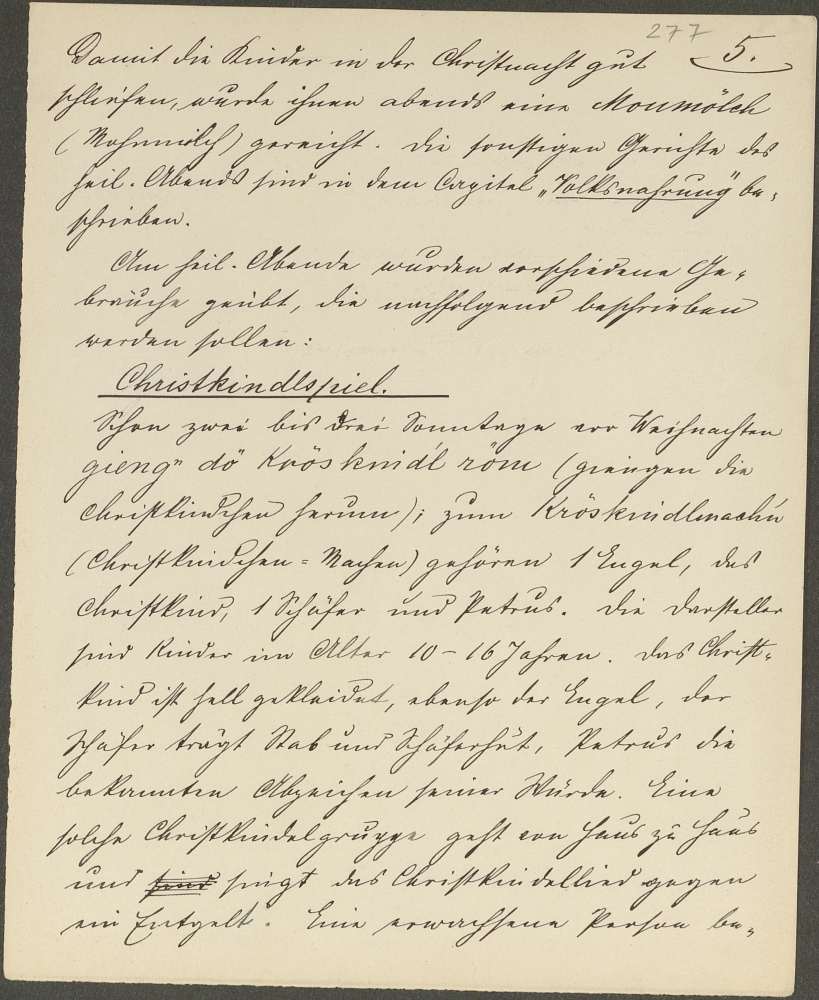 277
5.
Damit die Kinder in der Christnacht gut
schliefen, wurde ihnen abends eine Monmölch
(Mohnmilch) gereicht. Die sonstigen Gerichte des
heil. Abends sind in dem Capitel „Volksnahrung" be-
schrieben.
Am heil. Abende wurden verschiedene Ge-
bräuche geübt, die nachfolgend beschrieben
werden sollen:
Christkindlspiel.
Schon zwei bis drei Sonntage vor Weihnachten
gieng" dö Kröskindl röm (giengen die
Christkindchen herum); zum Kröskindlmachn
(Christkindchen-Machen) gehören 1 Engel, das
Christkind, 1 Schäfer und Petrus. Die Darsteller
sind Kinder im Alter 10-16 Jahren. Das Christ-
kind ist hell gekleidet, ebenso der Engel, der
Schäfer trägt Stab und Schäferhut, Petrus die
bekannten Abzeichen seiner Würde. Eine
solche Christkindelgruppe geht von Haus zu Haus
und sind singt das Christkindellied gegen
ein Entgelt. Eine erwachsene Person be-